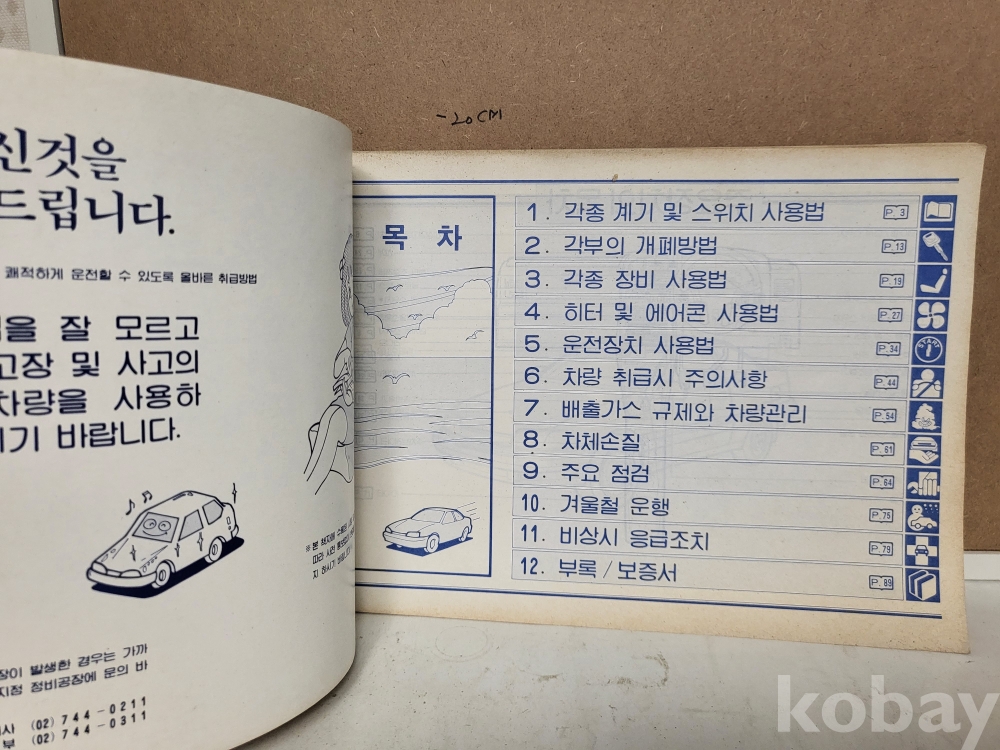 -20CM
신것을
드립니다.
쾌적하게 운전할 수 있도록 올바른 취급방법
을 잘 모르고
고장 및 사고의
차량을 사용하
기 바랍니다.
장이 발생한 경우는 가까
지정 정비공장에 문의 바
사 (02) 744-0211
부 (02) 744-0311
※본 책자에 수록된
지 하시기 바랍니다
목 차
1. 각종 계기 및 스위치 사용법 P.3
2. 각부의 개폐방법 P.13
3. 각종 장비 사용법 P.19
4. 히터 및 에어콘 사용법 P.27
5. 운전장치 사용법 P.34
START
6. 차량 취급시 주의사항 P.44
7. 배출가스 규제와 차량관리 P.54
8. 차체손질 P.61
9. 주요 점검 P.64
10. 겨울철 운행 P.75
11. 비상시 응급조치 P.79
12. 부록/보증서 P.89
kobay